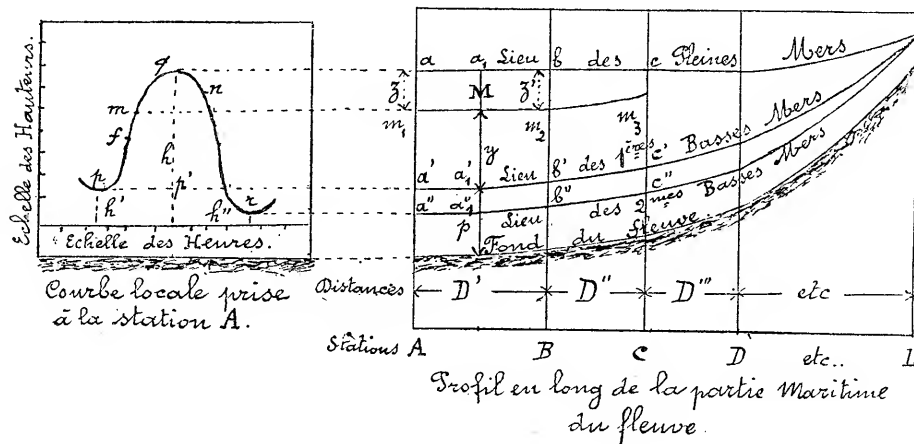 Echelle des Hauteurs.
q
m
n
f
h
p
p'
r
h'
h''
Echelle des Heures.
Courbe locale prise
à la station A.
a a, Lieu b des c Pleines Mers
z M z'
m₁ m₂ m₃
y
a' a'₁ Lieu b' des 1ères c' Basses Mers
a'' a''₁ Lieu b'' des 2mes c'' Basses Mers
p Fond du fleuve
Distances D' D'' D''' etc
Stations A B C D etc.. L
Profil en long de la partie Maritime
du fleuve.